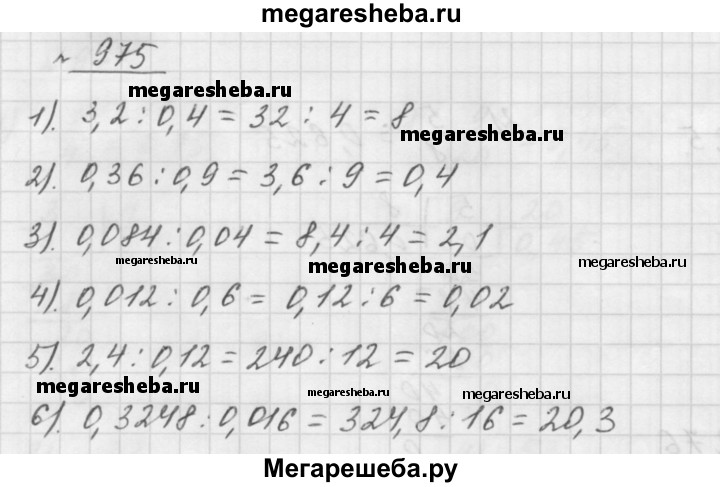 megaresheba.ru
№ 975
megaresheba.ru
1). 3,2 : 0,4 = 32 : 4 = 8
megaresheba.ru
2). 0,36 : 0,9 = 3,6 : 9 = 0,4
3). 0,084 : 0,04 = 8,4 : 4 = 2,1
megaresheba.ru megaresheba.ru megaresheba.ru
4). 0,012 : 0,6 = 0,12 : 6 = 0,02
5). 2,4 : 0,12 = 240 : 12 = 20
megaresheba.ru megaresheba.ru megaresheba.ru
6). 0,3248 : 0,016 = 324,8 : 16 = 20,3
Мегарешеба.ру